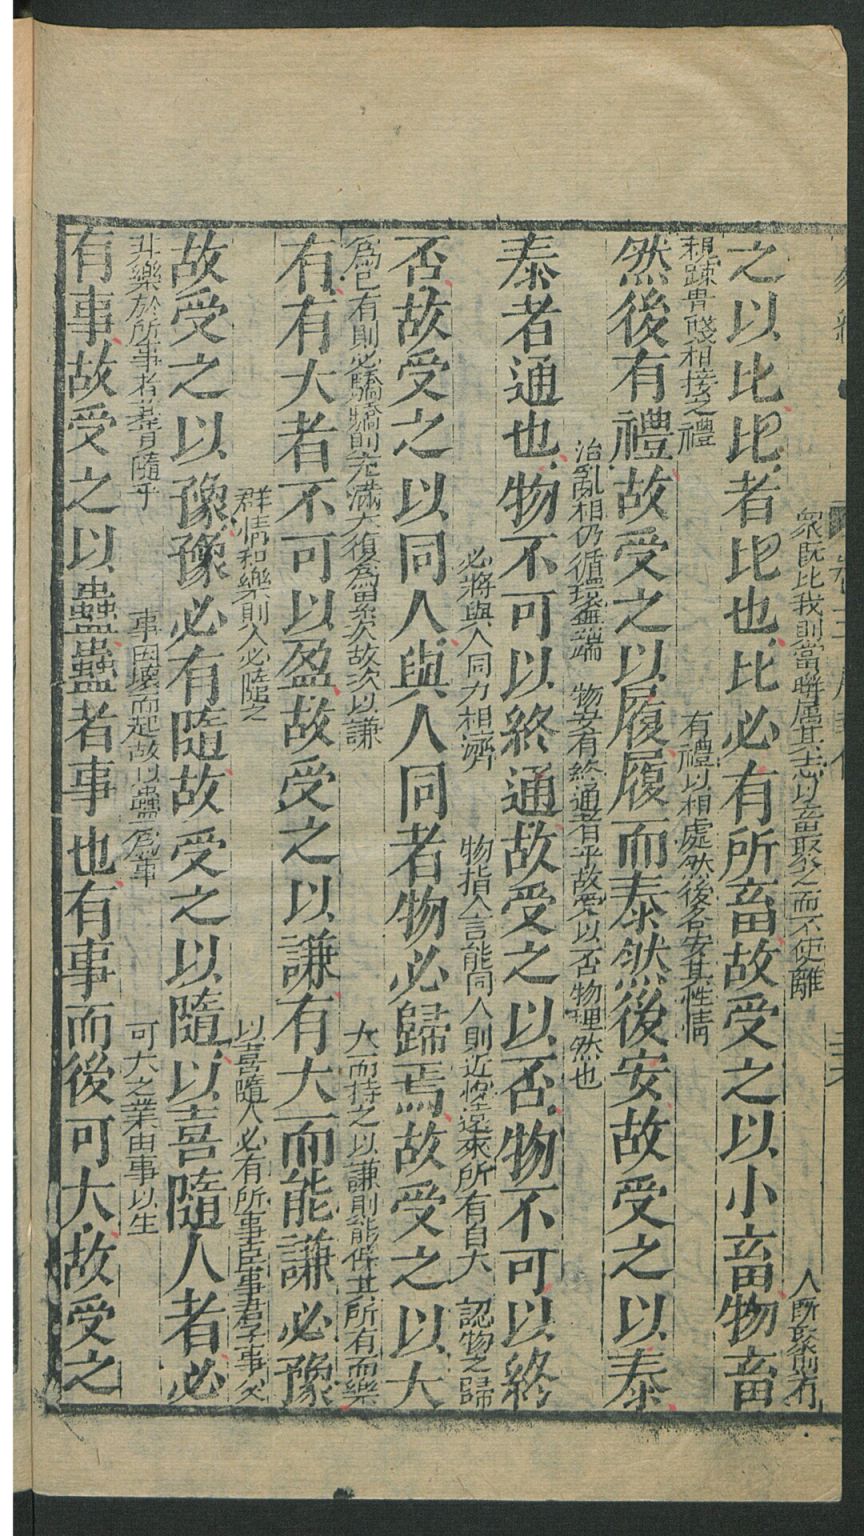 眾既比我則當聯屬其志以畜聚之而不使離　人所聚則有
之以比比者比也比必有所畜故受之以小畜物畜
親疎貴賤相接之禮　有禮以相處然後各安其性情
然後有禮故受之以履履而泰然後安故受之以泰
治亂相仍循環無端　物安有終通者乎故受以否物理然也
泰者通也物不可以終通故受之以否物不可以終
必將與人同力相濟　物指人言能同人則近悅遠來所有自大　認物之歸
否故受之以同人與人同者物必歸焉故受之以大
爲己有則必驕驕則充滿大復爲累矣故次以謙　大而持之以謙則能保其所有而樂
有有大者不可以盈故受之以謙有大而能謙必豫
群情和樂則人必隨之　以喜隨人必有所事臣事君子事父
故受之以豫豫必有隨故受之以隨以喜隨人者必
非樂於所事者其肯隨乎　事因壞而起故以蠱爲事　可大之業由事以生
有事故受之以蠱蠱者事也有事而後可大故受之